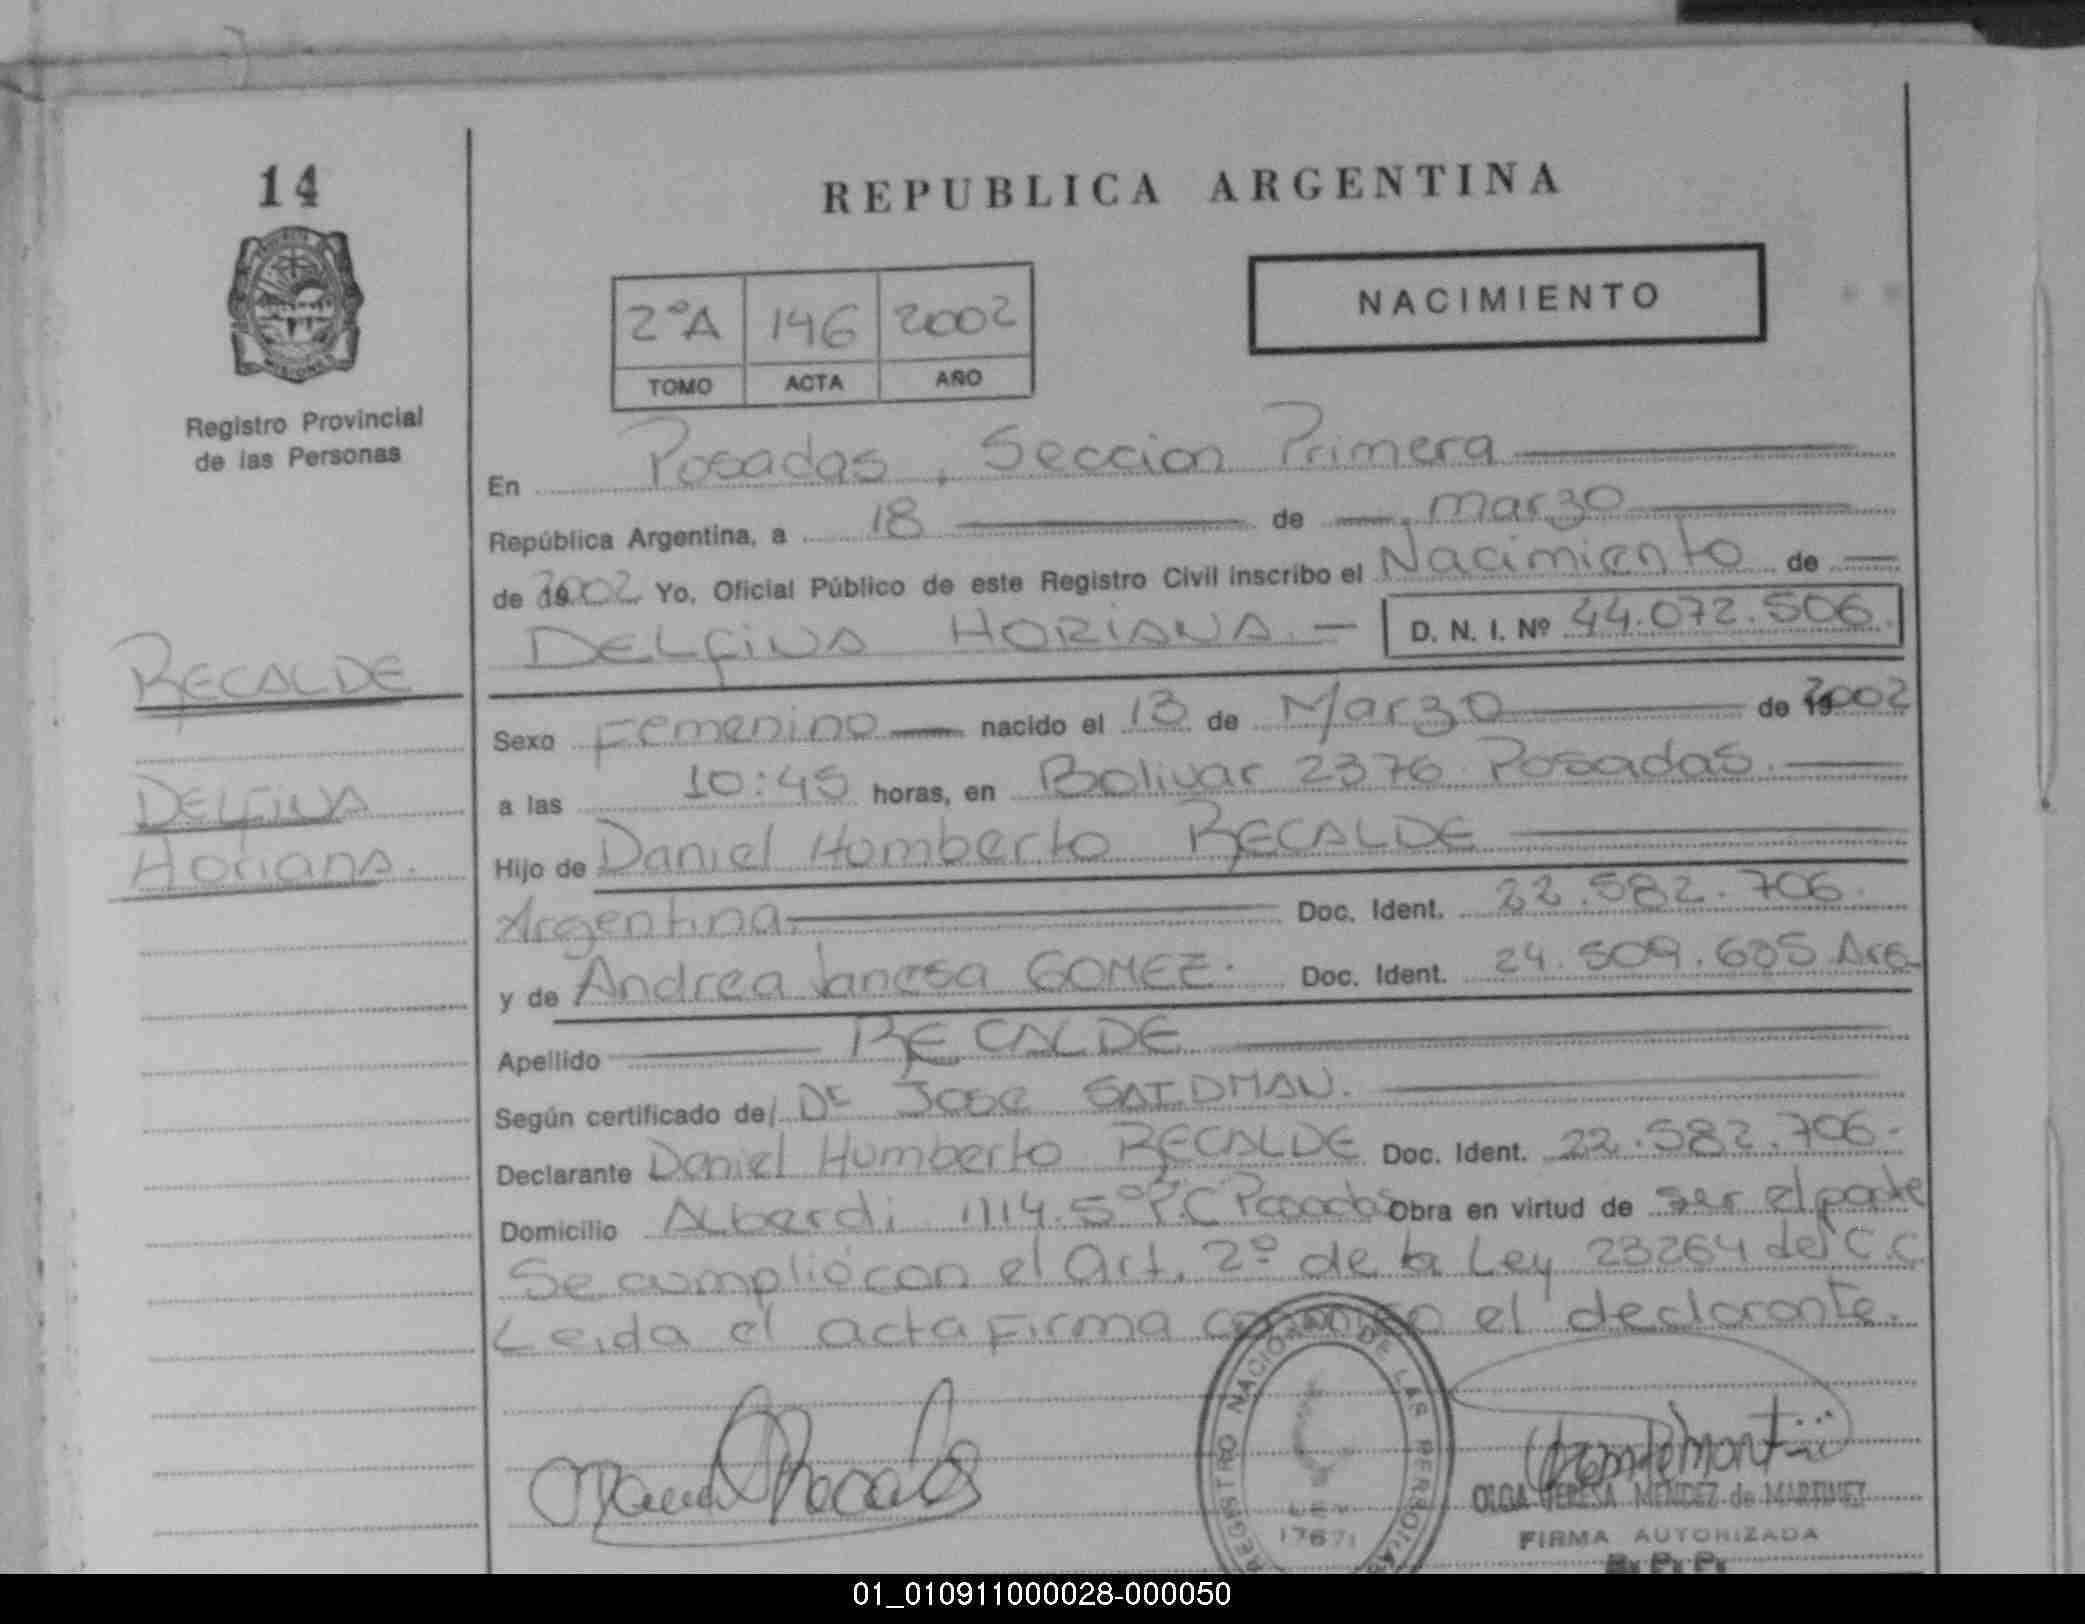 14
REPUBLICA ARGENTINA
NACIMIENTO
2ºA 146 2002
TOMO ACTA AÑO
Registro Provincial
de las Personas
En Posadas, Seccion Primera
República Argentina, a 18 de marzo
de 2002 Yo, Oficial Público de este Registro Civil inscribo el Nacimiento de
DELFINA HORIANA.- D. N. I. Nº 44.072.506.
RECALDE
DELFINA
Horiana.
Sexo Femenino nacido el 13 de Marzo de 2002
a las 10:45 horas, en Bolivar 2376 Posadas.
Hijo de Daniel Humberto RECALDE
Argentina. Doc. Ident. 22.582.706.
y de Andrea Vanesa GOMEZ. Doc. Ident. 24.509.605 Arg.
Apellido RECALDE
Según certificado de Dr Jose
Declarante Daniel Humberto RECALDE Doc. Ident. 22.582.706.-
Domicilio Alberdi 1114. 5º P.C Posadas Obra en virtud de ser el padre
Se cumplió con el Art. 2º de la Ley 23264 del C.C
Leida el acta Firma conmigo el declarante.
REGISTRO NACIONAL DE LAS PERSONAS
LEY
17671
OLGA TERESA MENDEZ de MARTINEZ
FIRMA AUTORIZADA
R. P. P.
01_010911000028-000050